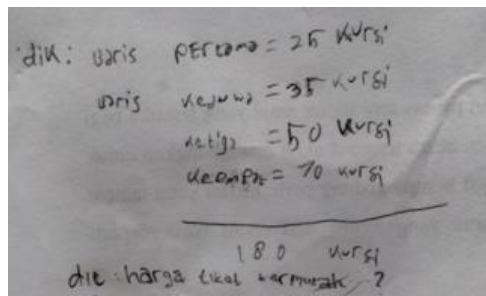 dik: baris pertama = 25 kursi
baris keduwa = 35 kursi
ketiga = 50 kursi
keempat = 70 kursi
180 kursi
dit: harga tiket termurah ?